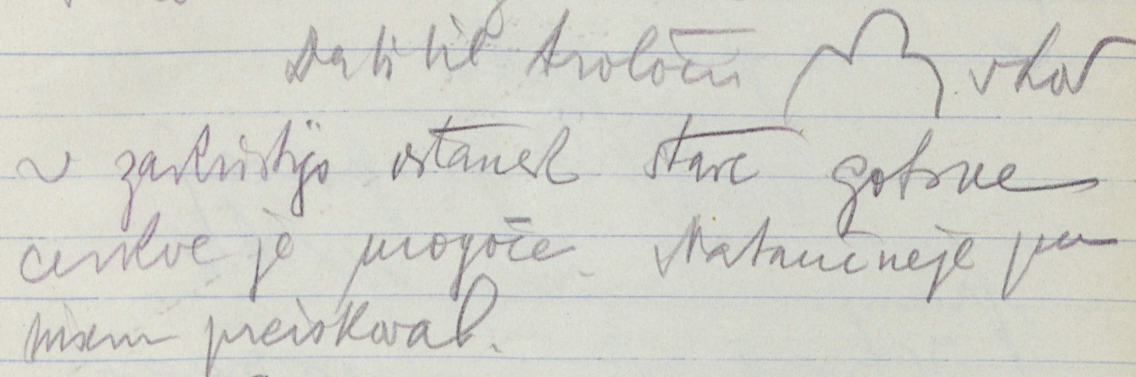 Da bi bil troločni vhod
v zakristijo ostanek stare gotske
cerkve je mogoče. Natančneje pa
nisem preiskoval.